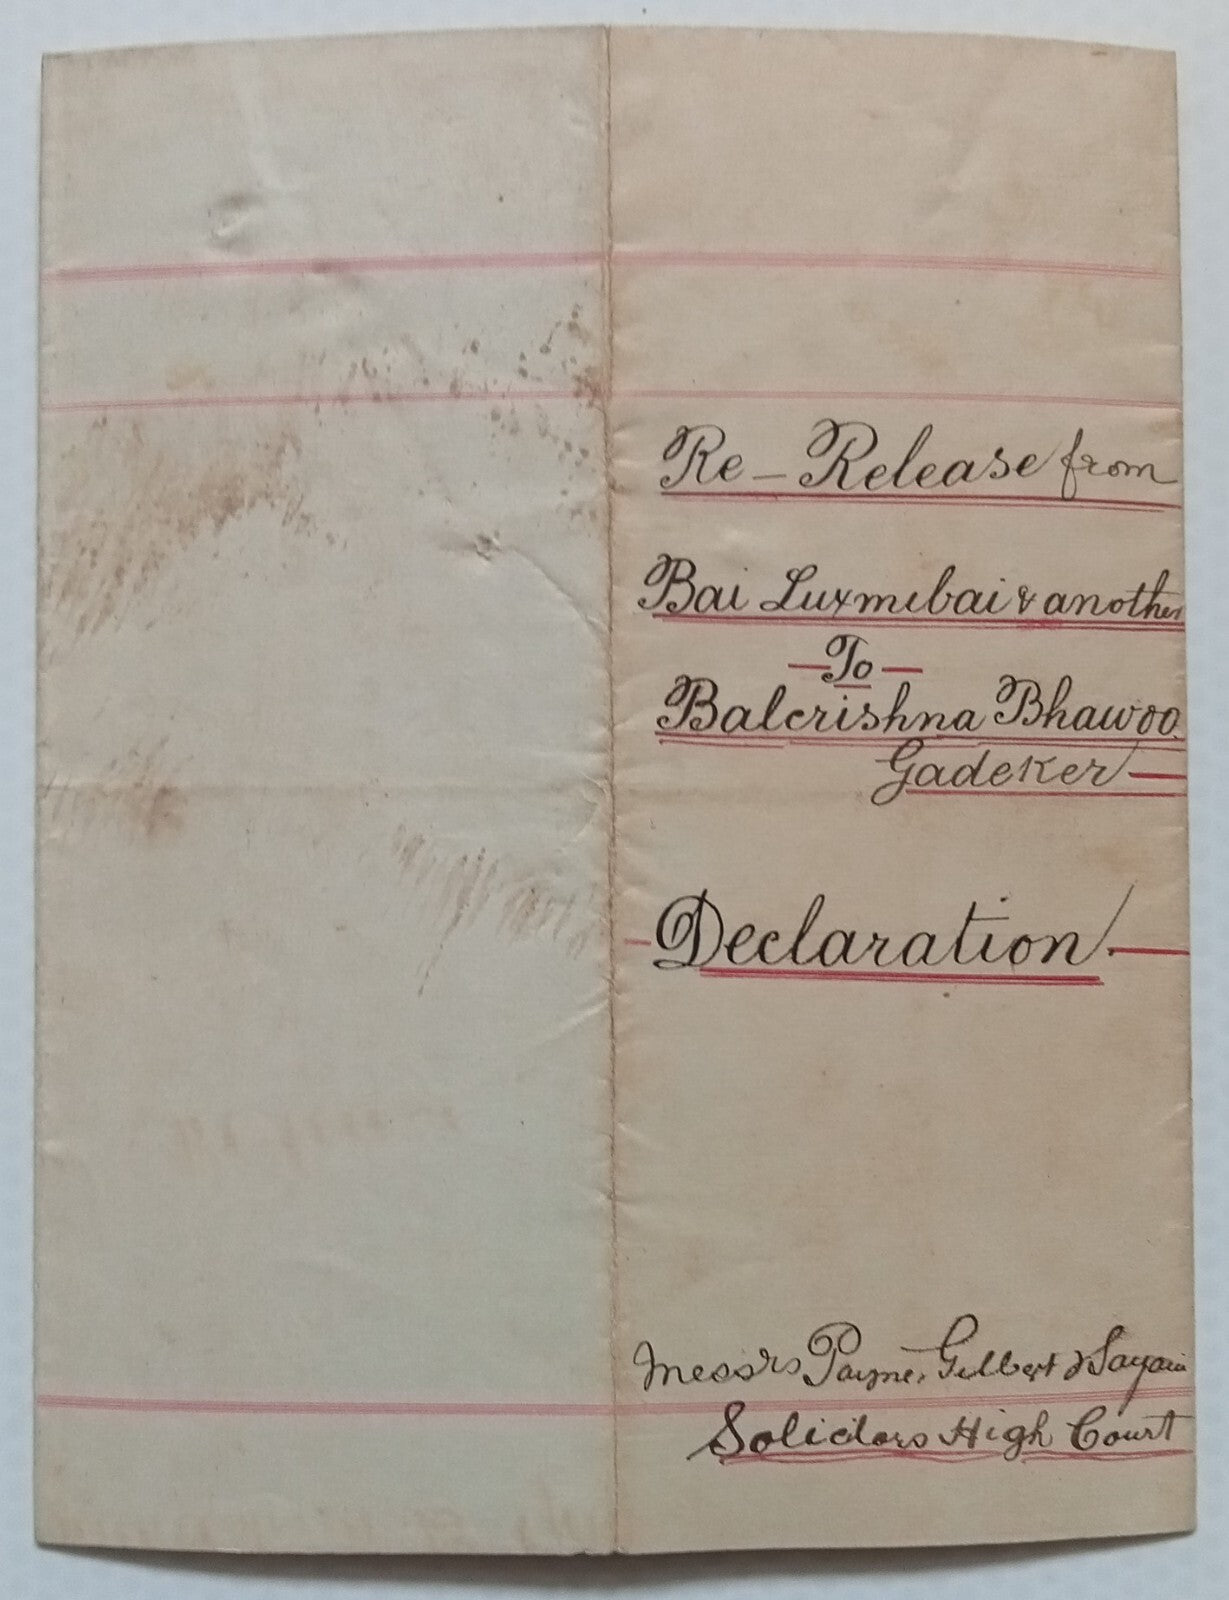 Re – Release from
Bai Luxmibai & another
— To —
Balcrishna Bhawoo
Gadeker —
— Declaration. —
Messrs Payne, Gilbert & Sayani
Solicitors High Court